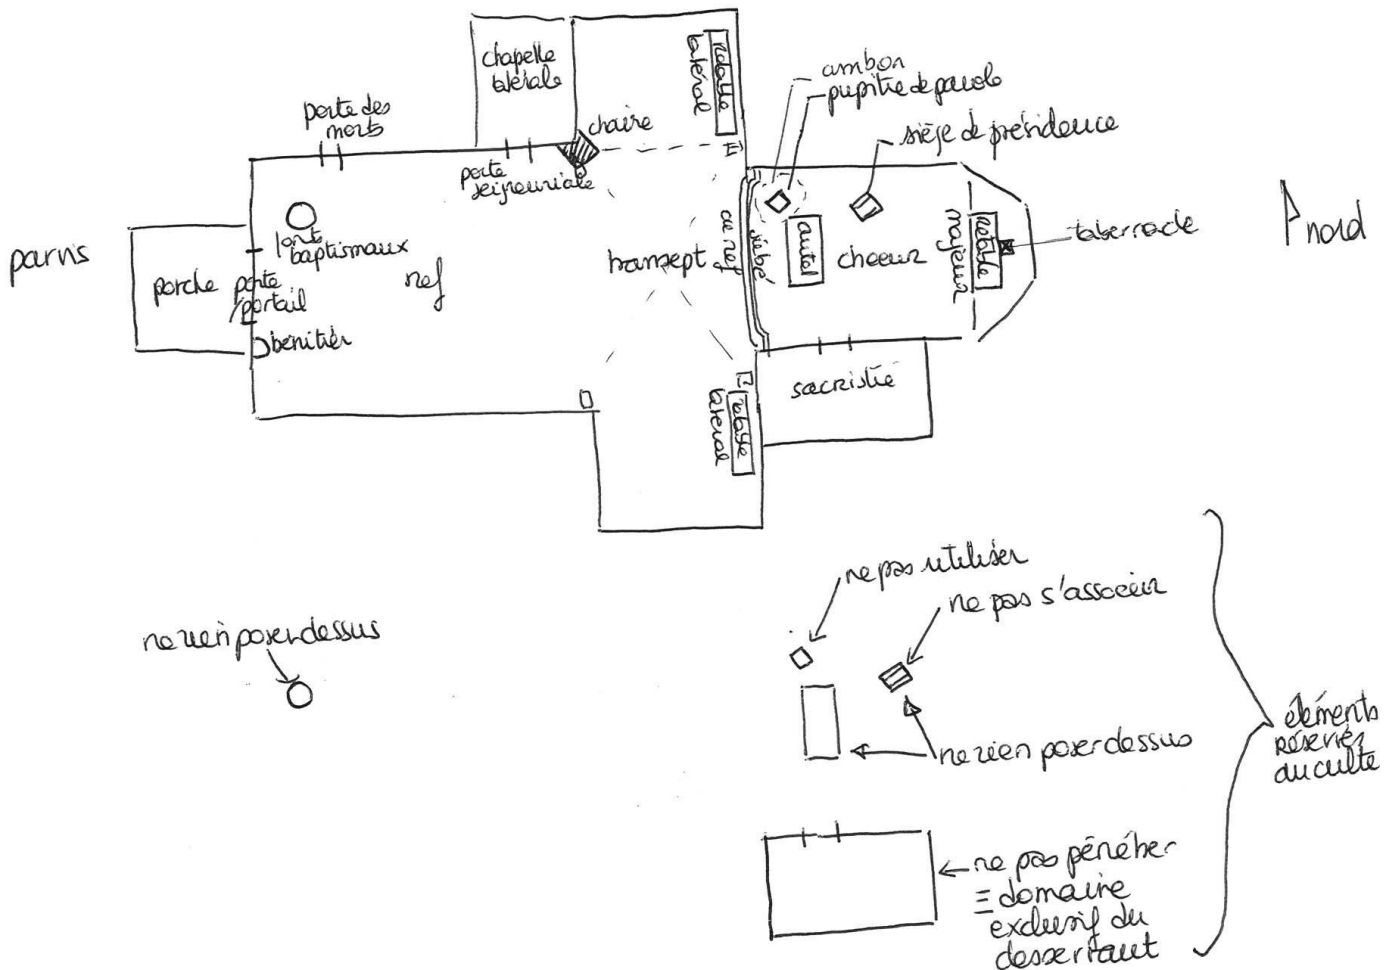 chapelle
latérale
retable
latéral
ambon
pupitre de parole
siège de présidence
porte des
morts
chaire
porte
seigneuriale
parvis
porche
porte
portail
fonts
baptismaux
bénitier
nef
transept
arc nef
jubé
autel
choeur
retable
majeur
tabernacle
nord
sacristie
retable
latéral
ne rien poser dessus
ne pas utiliser
ne pas s'associer
ne rien poser dessus
éléments
réservés
au culte
ne pas pénétrer
= domaine
exclusif du
desservant